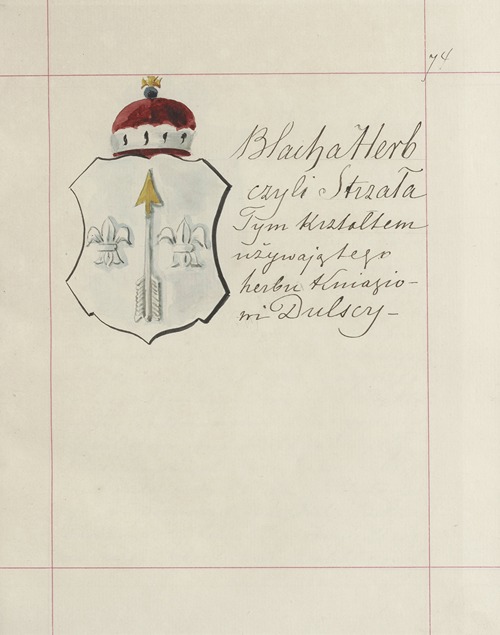 74
Blacha Herb
czyli Strzała
Tym Krztoltem
używają tego
herbu Kniazio-
wi Dulscy-